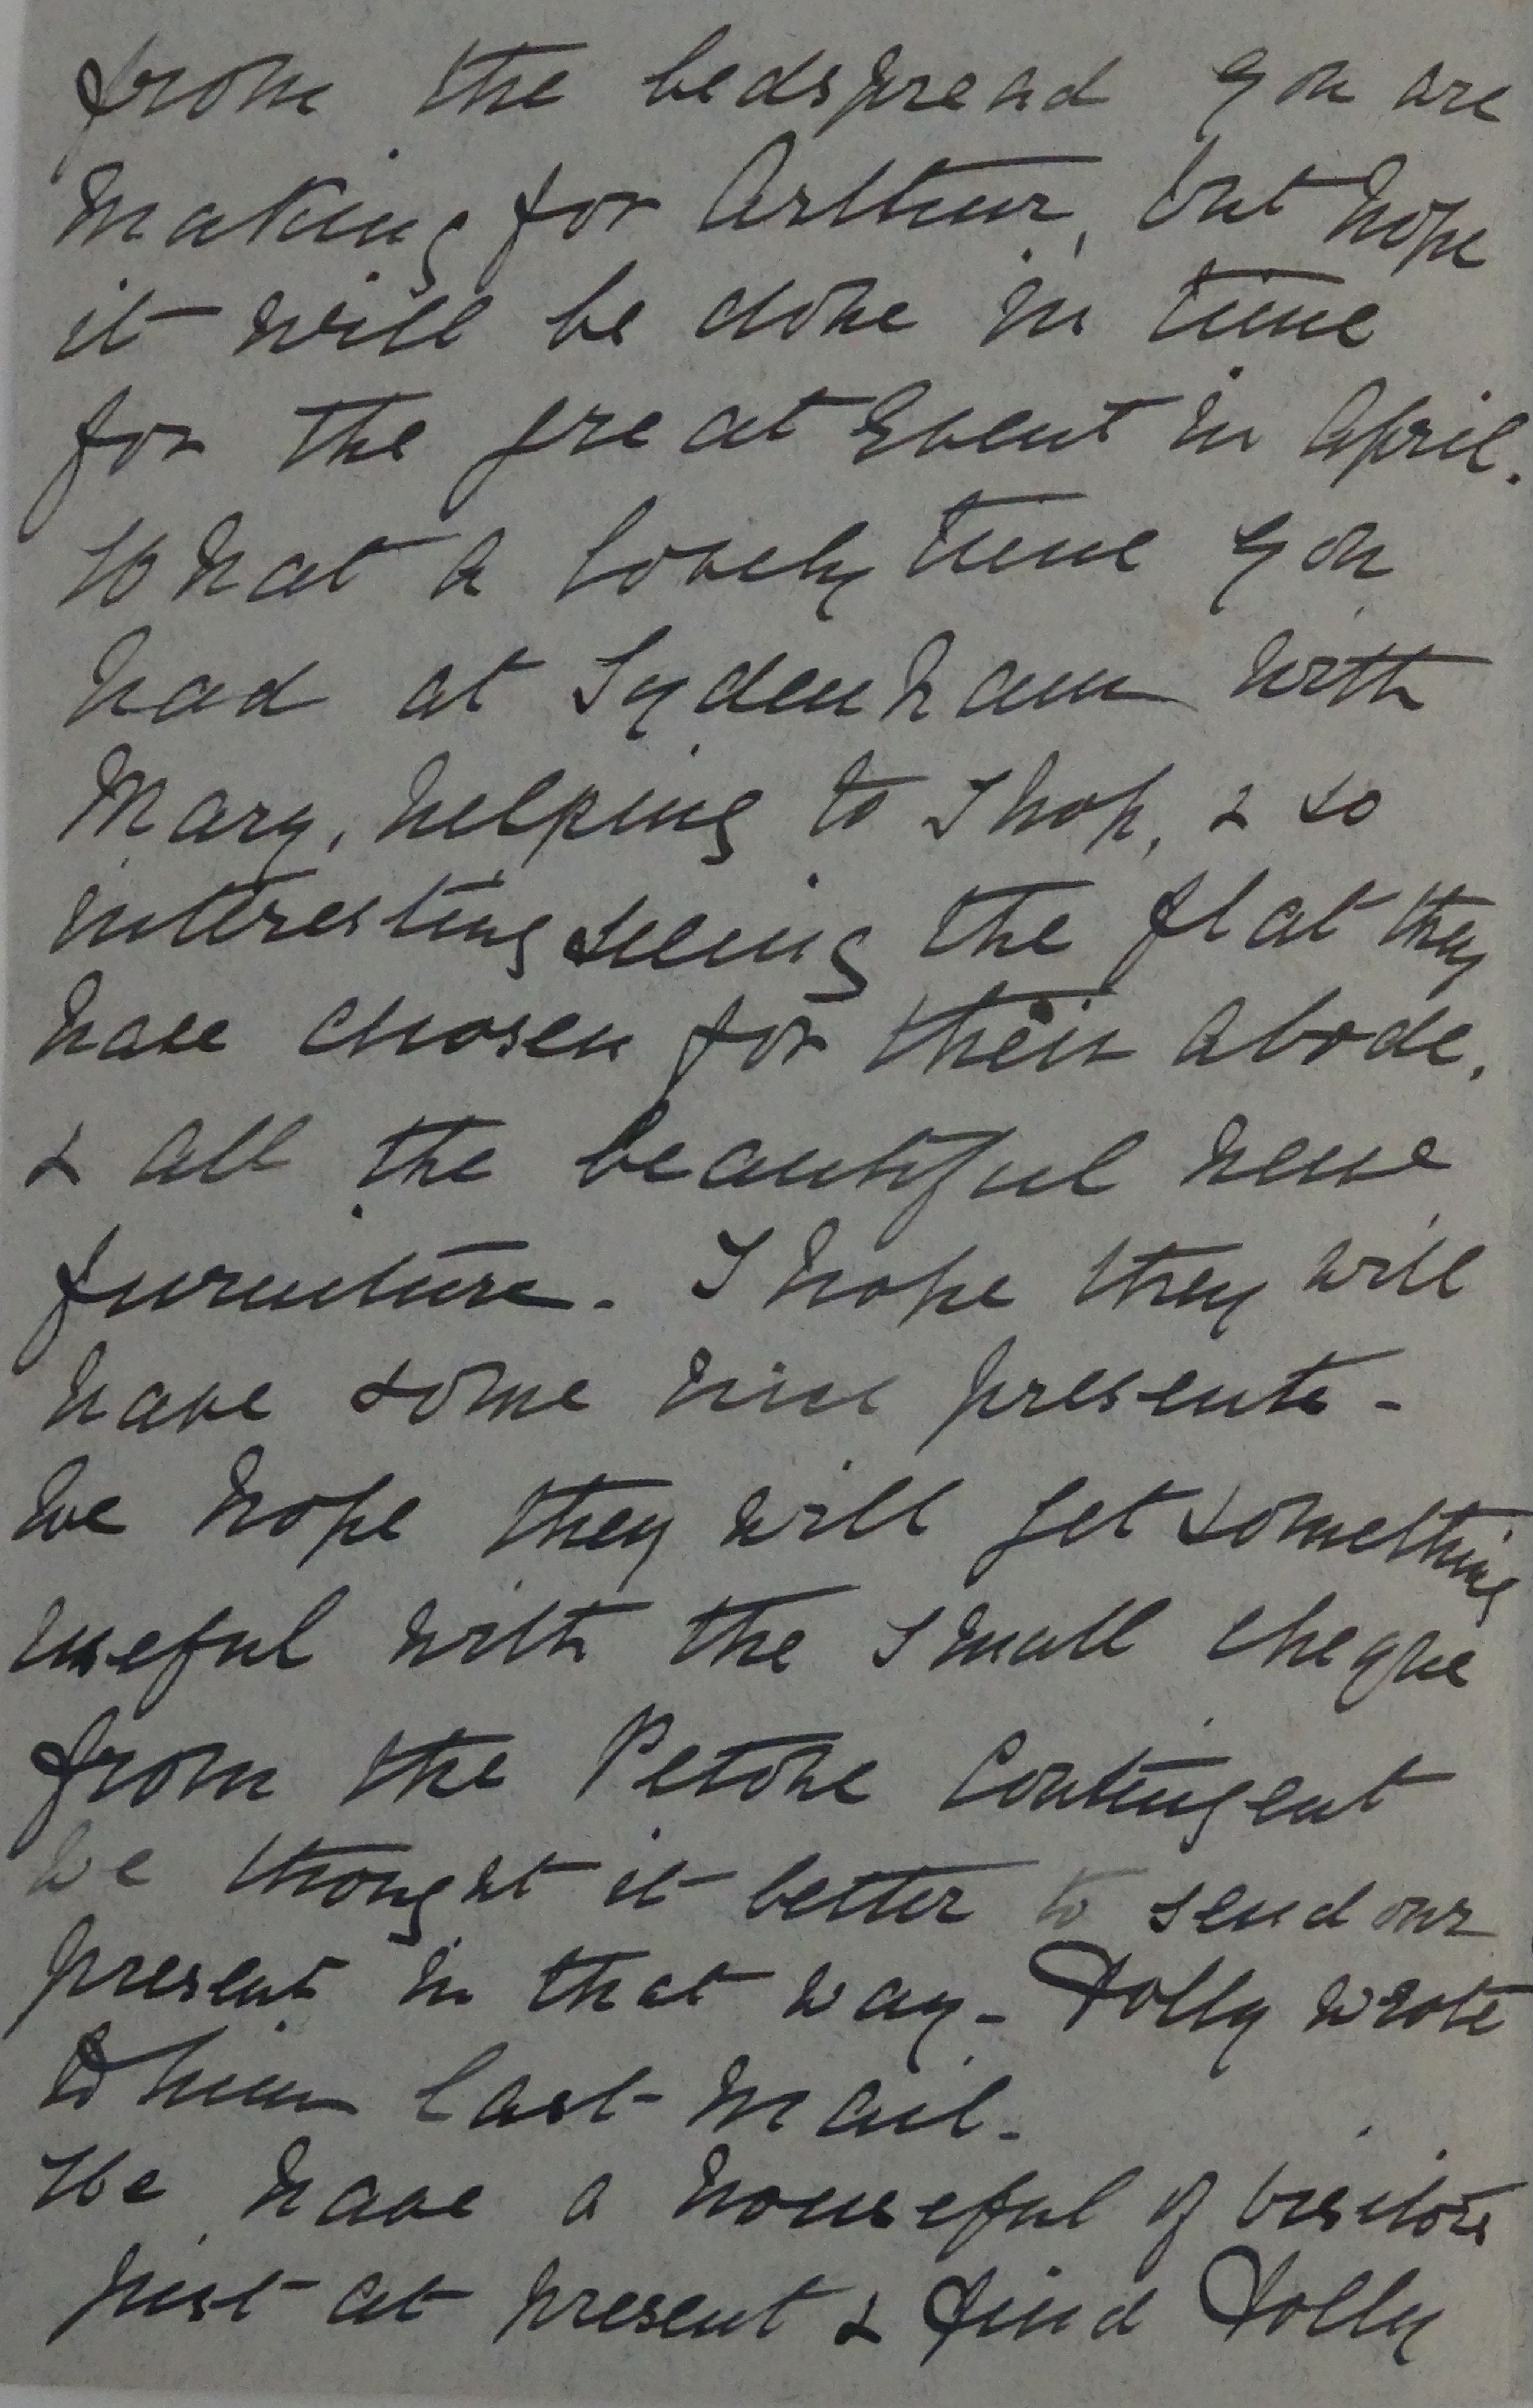 from the bedspread you are
making for Arthur, but hope
it will be done in time
for the great Event in April.
What a lovely time you
had at Sydenham with
Mary, helping to Shop, & so
interesting seeing the flat they
have chosen for their abode.
& all the beautiful new
furniture. I hope they will
have some nice presents -
We hope they will get something
useful with the small cheque
from the Petone Contingent
We thought it better to send our
present in that way - Dolly wrote
to him last mail.
We have a houseful of visitors
just at present & find Dolly